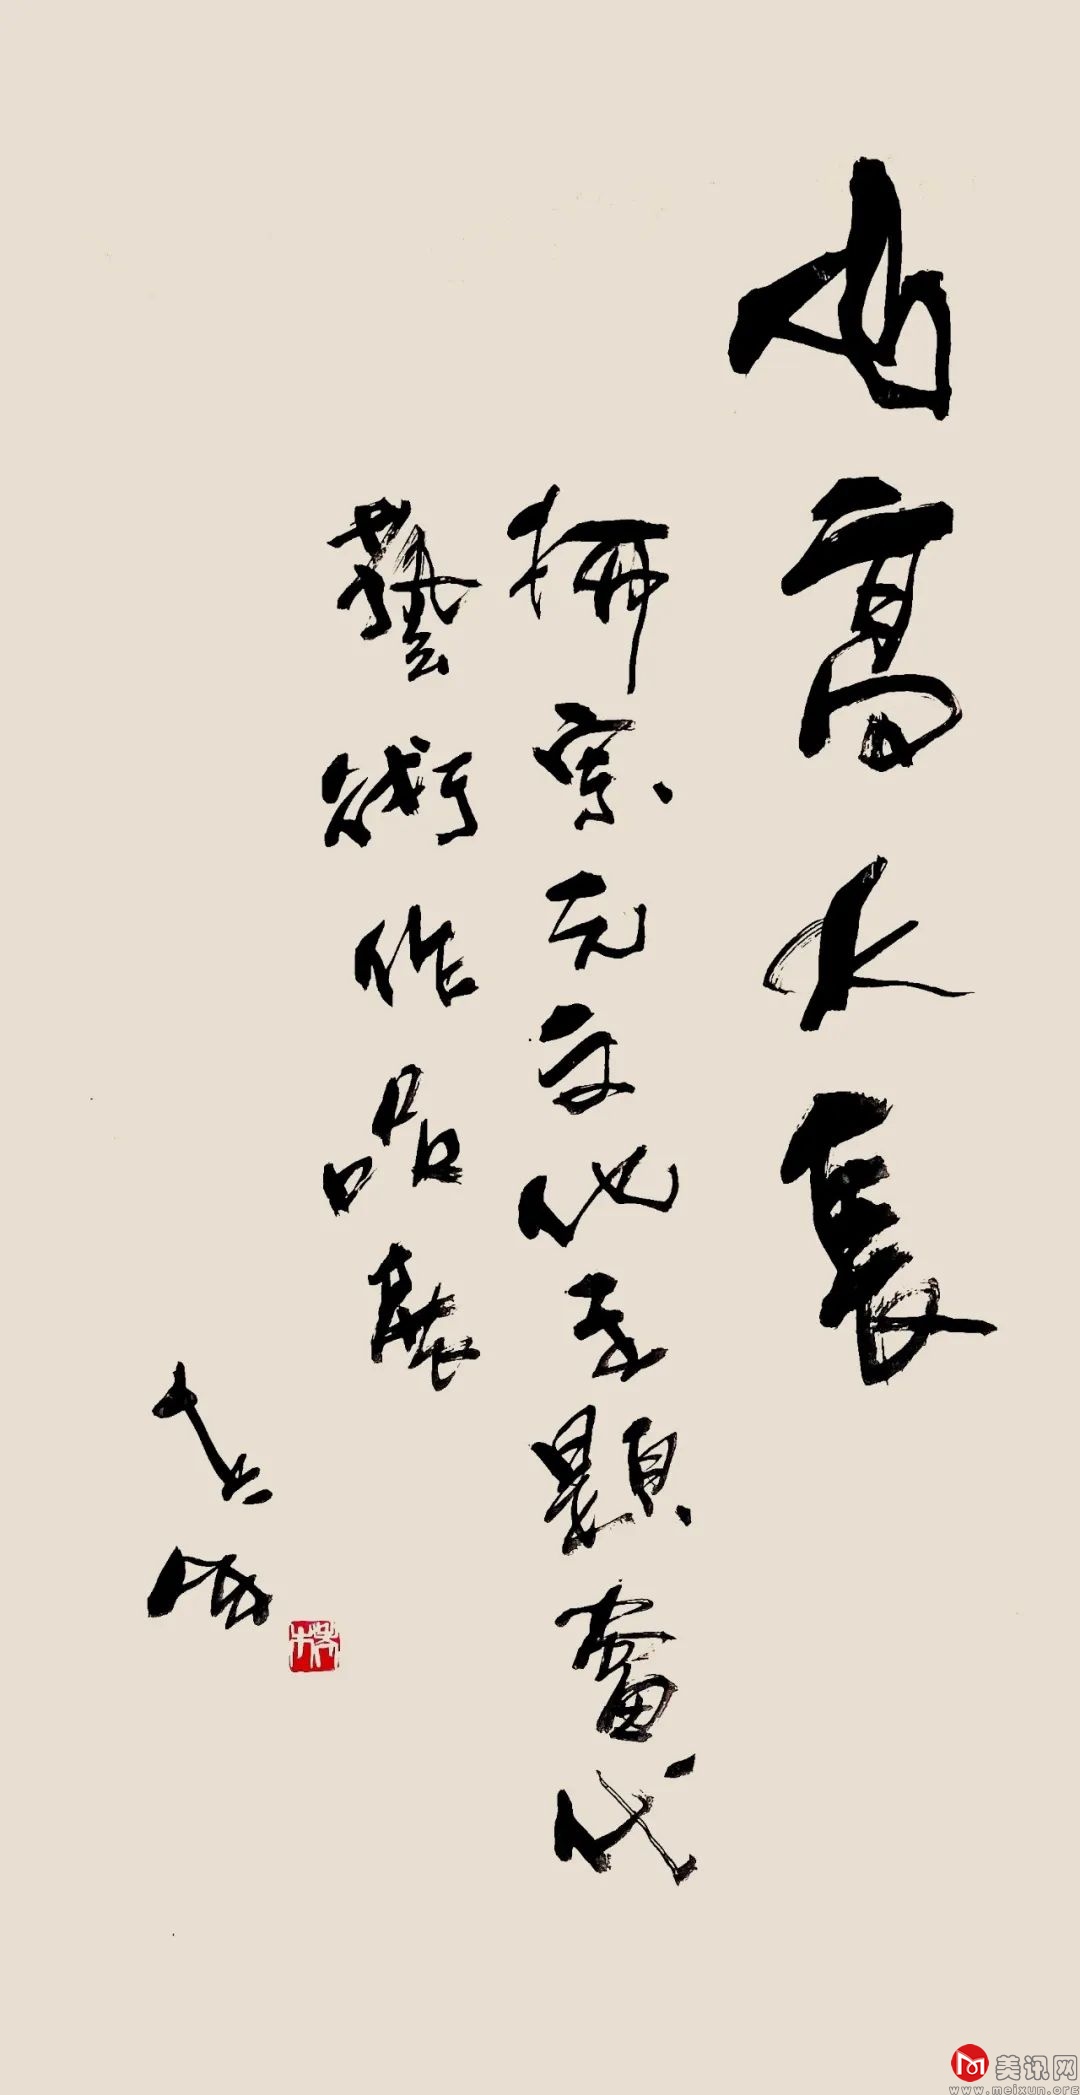 山高水長
柳宗元文化主題當代
藝術作品展
美讯网
www.meixun.org